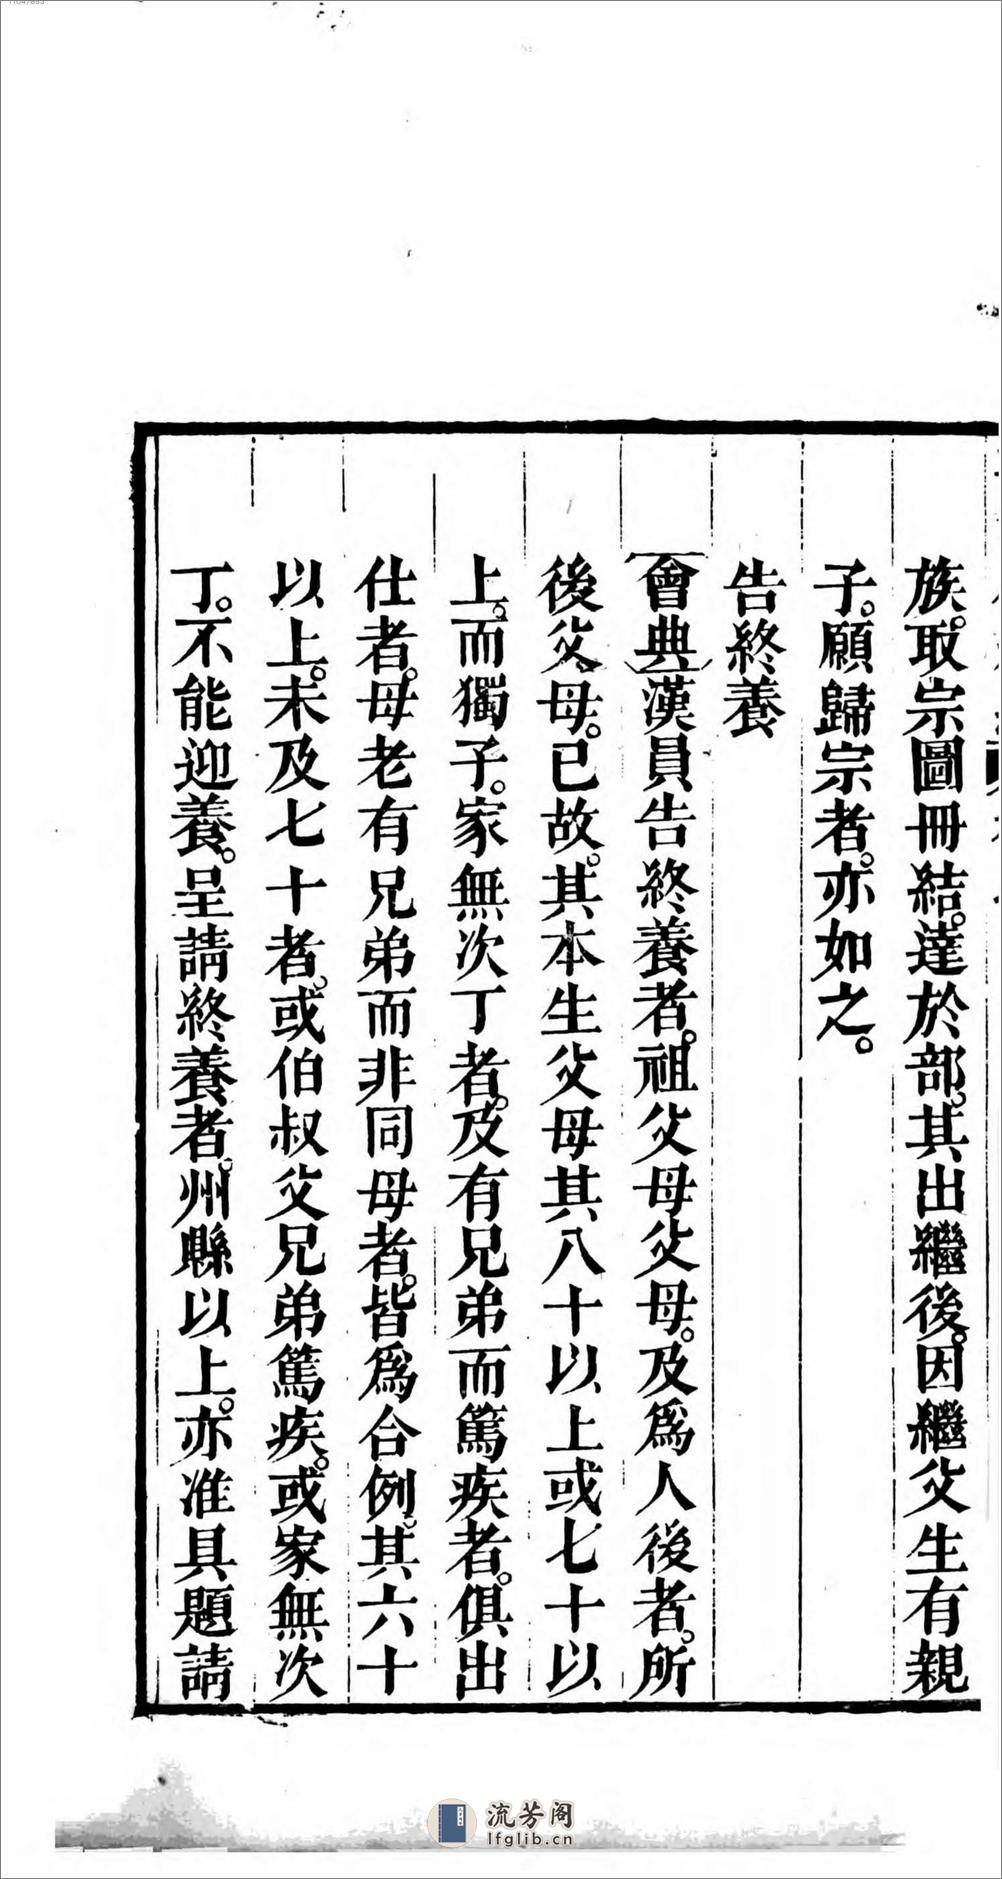 族。取宗圖冊結。達於部。其出繼後。因繼父生有親
子。願歸宗者。亦如之。
告終養
會典漢員告終養者。祖父母父母。及爲人後者。所
後父母。已故。其本生父母其八十以上或七十以
上。而獨子。家無次丁者。及有兄弟而篤疾者。俱出
仕者。母老有兄弟而非同母者。皆爲合例。其六十
以上。未及七十者。或伯叔父兄弟篤疾。或家無次
丁。不能迎養。呈請終養者。州縣以上。亦准具題請
流芳阁
lfglib.cn